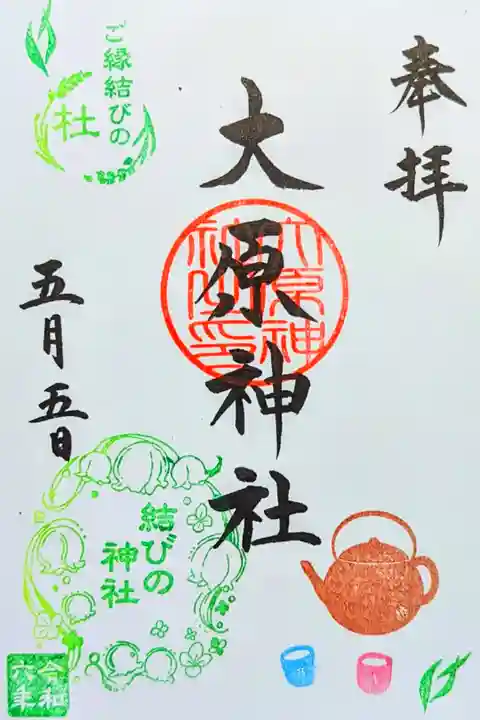 奉拝
大原神社
大原神社印
五月五日
ご縁結びの
杜
結びの
神社
令和
六年